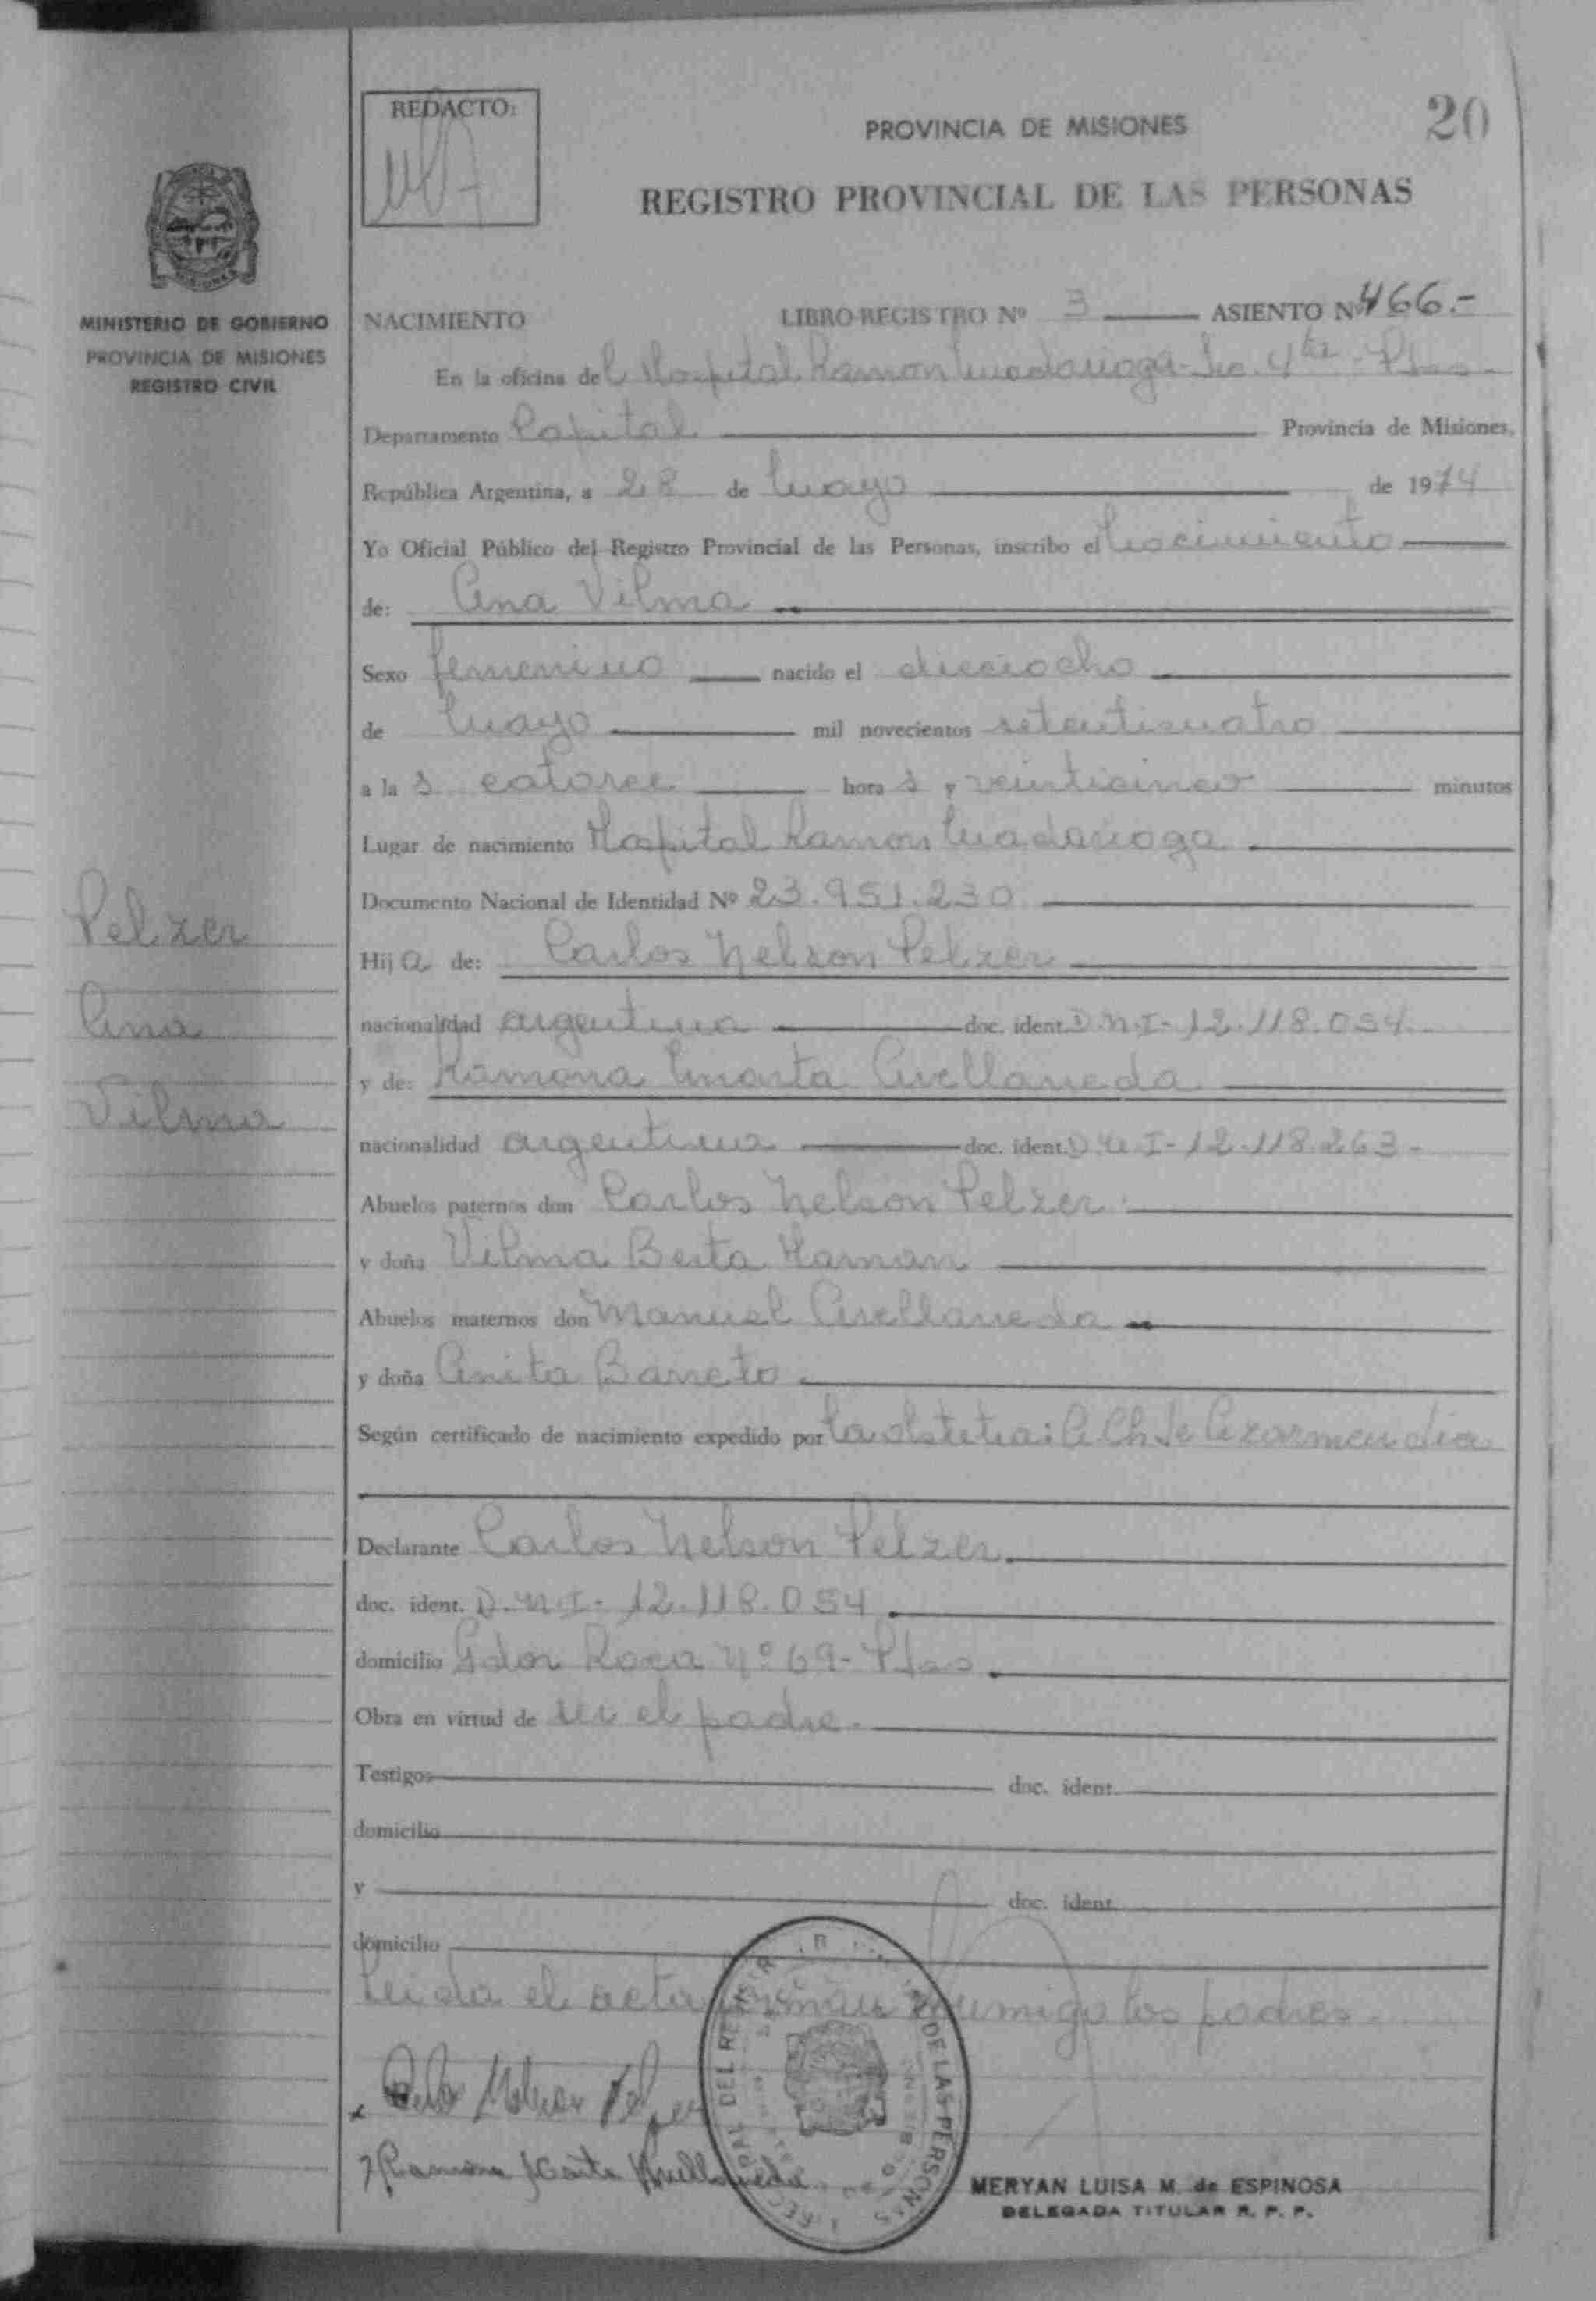 REDACTO:
20
PROVINCIA DE MISIONES
REGISTRO PROVINCIAL DE LAS PERSONAS
MINISTERIO DE GOBIERNO
PROVINCIA DE MISIONES
REGISTRO CIVIL
NACIMIENTO LIBRO REGISTRO Nº 3 ASIENTO Nº 466.-
En la oficina del Hospital Ramon Madariaga - Sec. 4ta - Pdas.
Departamento Capital Provincia de Misiones,
República Argentina, a 28 de Mayo de 1974
Yo Oficial Público del Registro Provincial de las Personas, inscribo el Nacimiento
de: Ana Vilma
Sexo femenino nacido el dieciocho
de Mayo mil novecientos setenticuatro
a la s catorce hora s y veinticinco minutos
Lugar de nacimiento Hospital Ramon Madariaga
Documento Nacional de Identidad Nº 23.951.230
Pelzer
Ana
Vilma
Hij a de: Carlos Nelson Pelzer
nacionalidad argentina doc. ident. D.N.I- 12.118.054.
y de: Ramona Marta Avellaneda
nacionalidad argentina doc. ident. D.N.I- 12.118.263-
Abuelos paternos don Carlos Nelson Pelzer.
y doña Vilma Berta Haman
Abuelos maternos don Manuel Avellaneda
y doña Anita Barreto
Según certificado de nacimiento expedido por la obstetra: A. Ch. de Azarmendia
Declarante Carlos Nelson Pelzer
doc. ident. D.N.I- 12.118.054
domicilio Gdor Roca Nº 69- Pdas
Obra en virtud de ser el padre.
Testigos doc. ident.
domicilio
y doc. ident.
domicilio
Leida el acta firman conmigo los padres.
Carlos Nelson Pelzer
Ramona Marta Avellaneda
DEL REGISTRO DE LAS PERSONAS
MERYAN LUISA M. de ESPINOSA
DELEGADA TITULAR R. P. P.